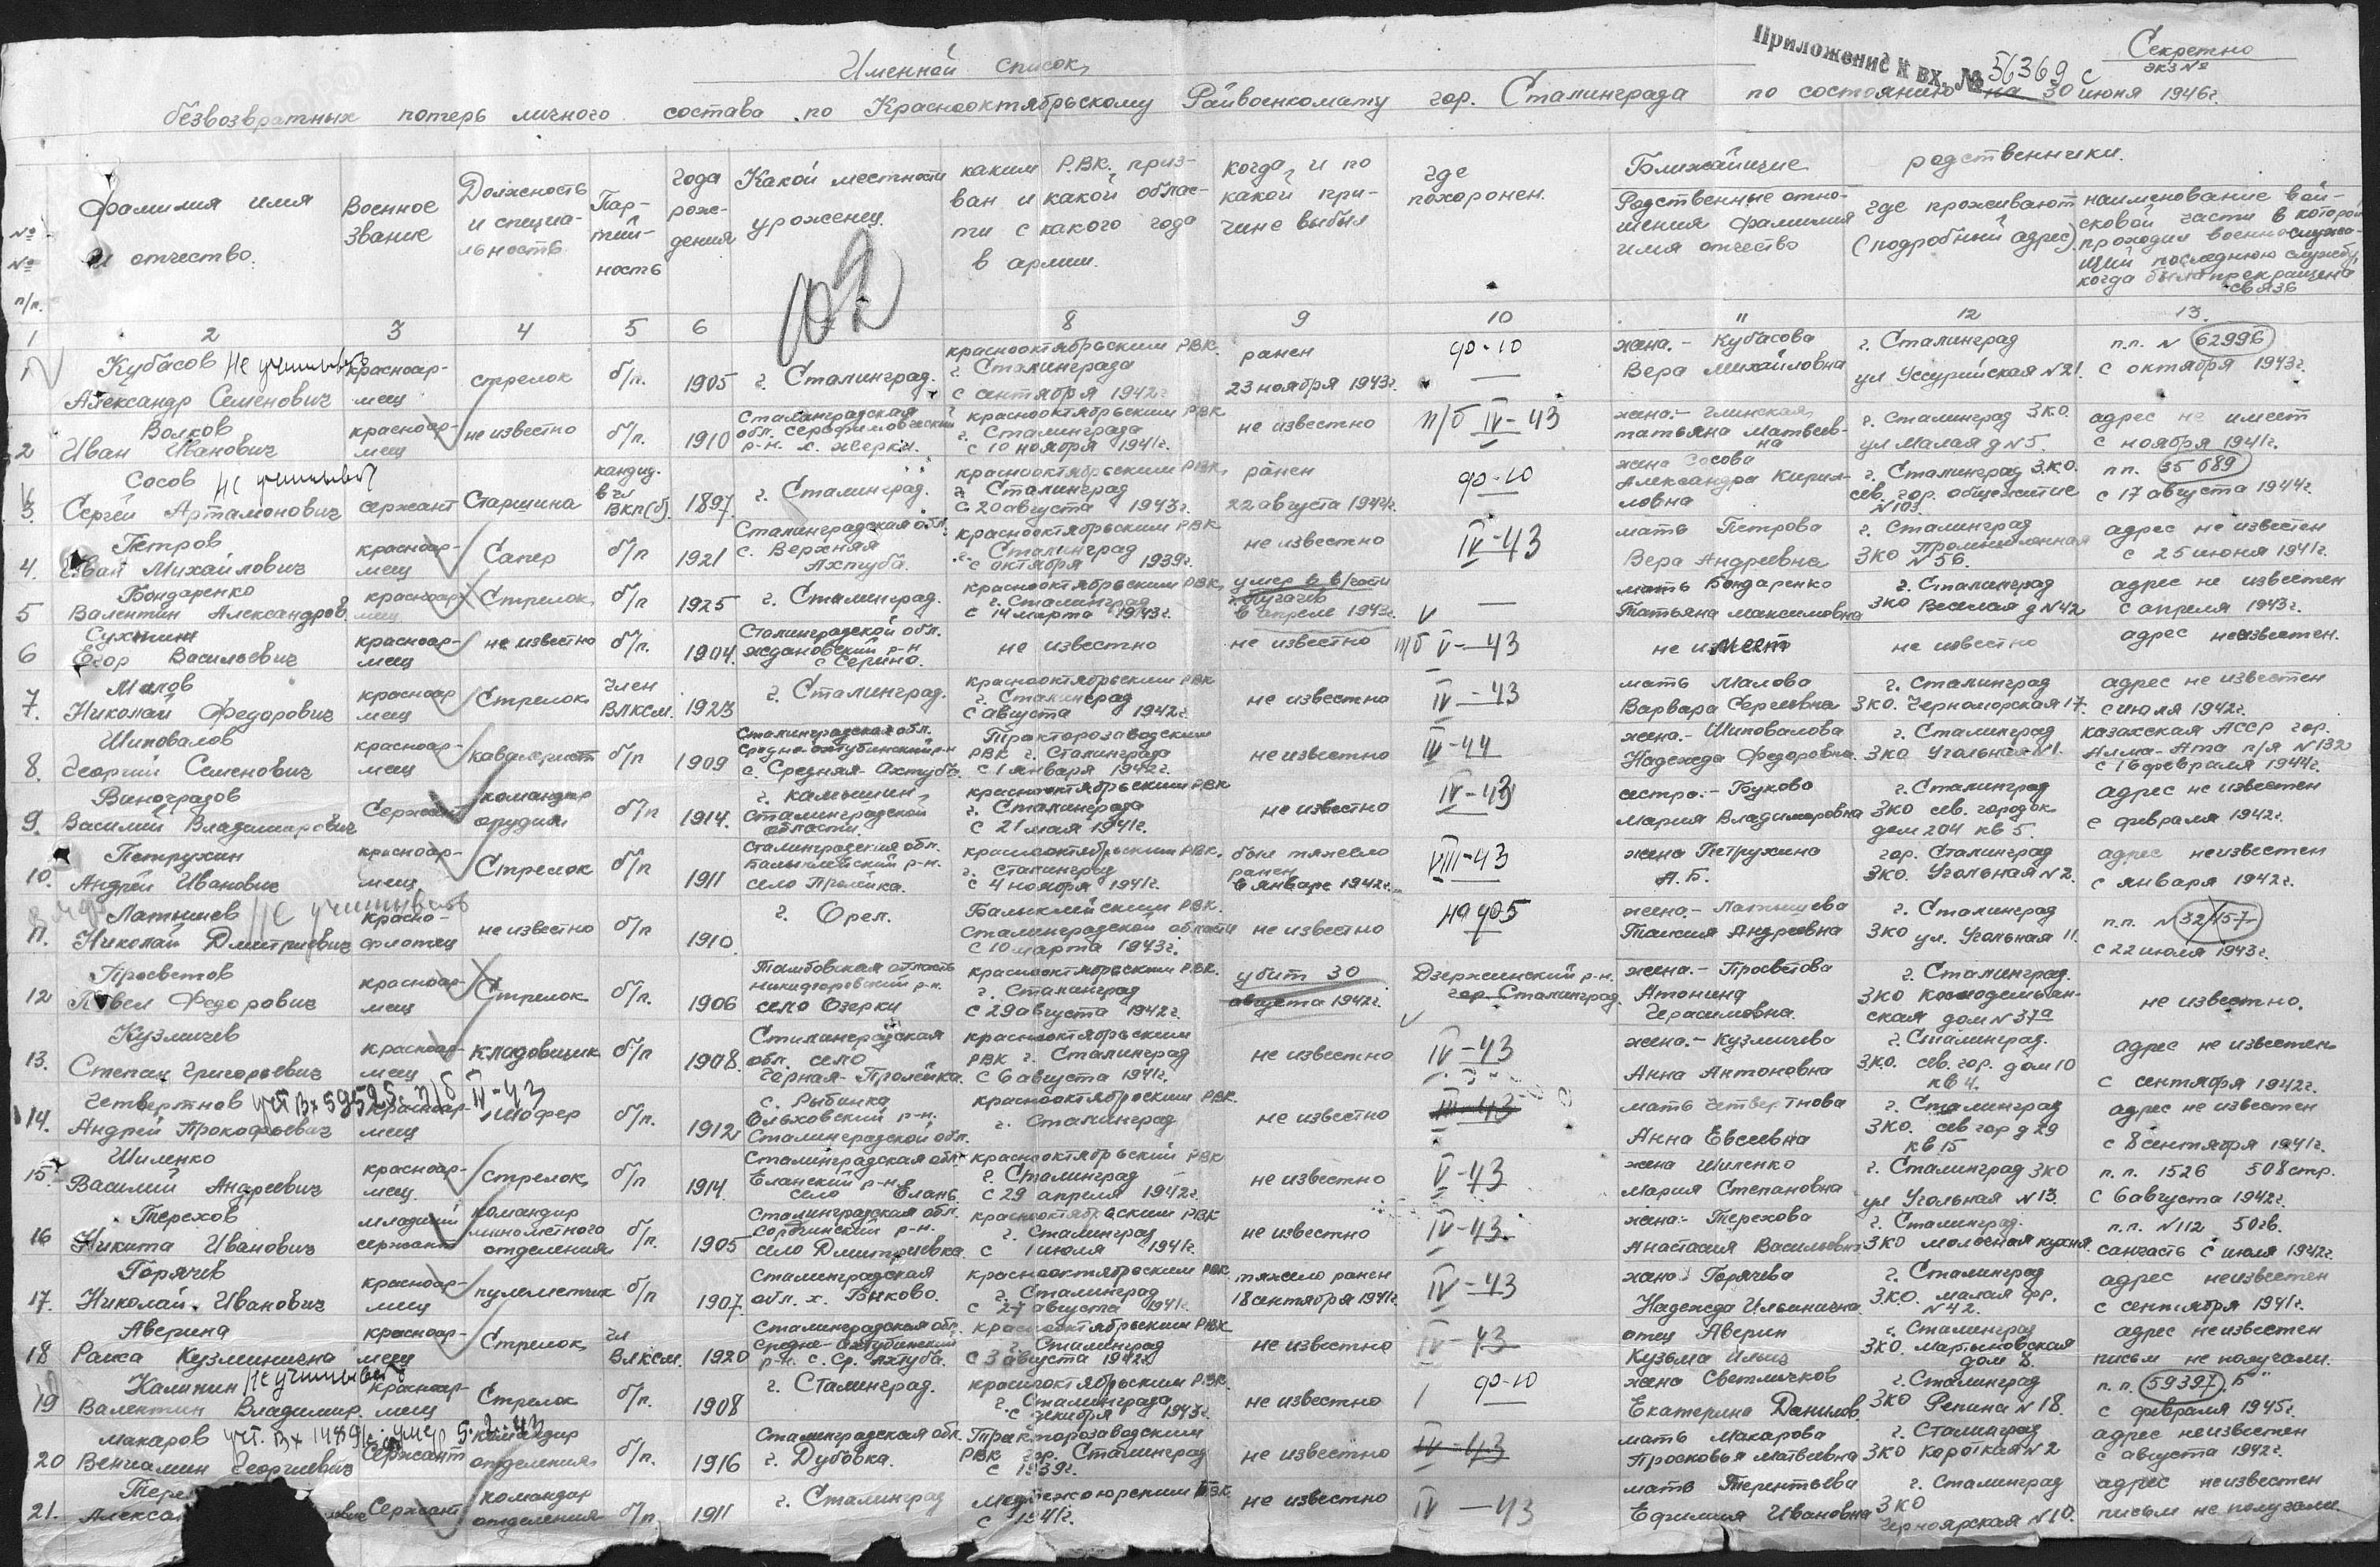 Приложение к вх. № 56369 с
Секретно
экз №
Именной список
безвозвратных потерь личного состава по Краснооктябрьскому Райвоенкомату гор. Сталинграда по состоянию на 30 июня 1946г.
№ № п/п.
Фамилия имя и отчество.
Военное звание
Должность и специальность
Пар-тий-ность
года рож-дения
Какой местности уроженец.
каким Р.В.К. приз-ван и какой облас-ти с какого года в армии.
когда и по какой при-чине выбыл
где похоронен.
Ближайшие родственники.
Родственные отно-шения фамилия имя отчество
где проживают (подробный адрес)
наименование вой-сковой части в которой проходил военнослужа-щий последнюю службу, когда была прекращена связь
102
1 2 3 4 5 6 8 9 10 11 12 13.
1 Кубасов Не учитывать Александр Семенович красноар-мец стрелок б/п. 1905 г. Сталинград. краснооктябрьским РВК. г. Сталинграда с сентября 1942г. ранен 23 ноября 1943г. ф-10 жена.- Кубасова Вера Михайловна г. Сталинград ул Уссурийская №21. п.п. № 62996 с октября 1943г.
2 Волков Иван Иванович красноар-мец не известно б/п. 1910 Сталинградская обл. Серафимовический р-н. х. краснооктябрьским РВК г. Сталинграда с 10 ноября 1941г. не известно п/б IV-43 жена.- Глинская татьяна Матвеев-на г. Сталинград ЗКО. ул Малая д №5. адрес не имеет с ноября 1941г.
3. Сосов Не учитывать Сергей Артамонович сержант Старшина кандид. в чл ВКП(б). 1897. г. Сталинград. краснооктябрьским РВК, г. Сталинград с 20 августа 1943г. ранен 22 августа 1944г. ф-10 жена Сосова Александра Кирил-ловна г. Сталинград ЗКО. сев. гор. общежитие №103. п.п. 35689 с 17 августа 1944г.
4. Петров Иван Михайлович красноар-мец Сапер б/п 1921 Сталинградская обл. с. Верхняя Ахтуба. краснооктябрьским РВК г. Сталинград с октября 1939г. не известно IV-43 мать Петрова Вера Андреевна г. Сталинград ЗКО Промышленная №56. адрес не известен с 25 июня 1941г.
5 Бондаренко Валентин Александров. красноар-мец Стрелок б/п 1925 г. Сталинград. краснооктябрьским РВК, г. Сталинград с 14 марта 1943г. умер в в/части в апреле 1943г. — мать Бондаренко Татьяна Максимовна г. Сталинград ЗКО Веселая д №42 адрес не известен с апреля 1943г.
6 Сухинин Егор Васильевич красноар-мец не известно б/п. 1904. Сталинградской обл. ждановский р-н с Серино. не известно не известно п/б V-43 не имеет не известно адрес не известен.
7. Малов Николай Федорович красноар мец Стрелок член ВЛКСМ. 1923 г. Сталинград. краснооктябрьским РВК г. Сталинград с августа 1942г. не известно IV-43 мать Малова Варвара Сергеевна г. Сталинград ЗКО. Черноморская 17. адрес не известен с июля 1942г.
8. Шиповалов Георгий Семенович красноар-мец кавалерист б/п 1909 Сталинградская обл. Средне-ахтубинский р-н с. Средняя-Ахтуба. Тракторозаводским РВК г. Сталинграда с 1 января 1942г. не известно IV-44 жена.- Шиповалова Надежда Федоровна. г. Сталинград ЗКО Угольная №1. казахская АССР гор. Алма-Ата п/я №132 с 16 февраля 1944г.
9. Виноградов Василий Владимирович Сержант командир орудия б/п 1914. г. камышин, Сталинградской области. краснооктябрьским РВК г. Сталинграда с 21 мая 1941г. не известно IV-43 сестра.- Букова Мария Владимировна г. Сталинград ЗКО сев. городок дом 204 кв 5. адрес не известен с февраля 1942г.
10. Петрухин Андрей Иванович красноар-мец Стрелок б/п 1911 Сталинградская обл. Балыклейский р-н. село Пролейка. краснооктябрьским РВК. г. Сталинград с 4 ноября 1941г. был тяжело ранен в январе 1942г. VIII-43 жена Петрухина А.Б. гор. Сталинград ЗКО. Угольная №2. адрес неизвестен с января 1942г.
11. Латышев Не учитывать Николай Дмитриевич красно-флотец не известно б/п 1910. г. Орел. Балыклейским РВК. Сталинградской области с 10 марта 1943г. не известно жена.- Латышева Таисия Андреевна г. Сталинград ЗКО ул. Угольная 11. п.п. № 32457 с 22 июля 1943г.
12 Просветов Павел Федорович красноар-мец Стрелок б/п. 1906 Тамбовская область никифоровский р-н. село Озерки краснооктябрьским РВК. г. Сталинград с 29 августа 1942г. убит 30 августа 1942г. Дзержинский р-н. гор. Сталинград. жена.- Просветова Атонина Герасимовна. г. Сталинград. ЗКО космодемьян-ская дом №37а не известно.
13. Кузмичев Степан Григорьевич красноар-мец кладовщик б/п 1908. Сталинградская обл. село Черная-Пролейка. краснооктябрьским РВК г. Сталинград с 6 августа 1941г. не известно IV-43 жена.- Кузмичева Анна Антоновна г. Сталинград. ЗКО. сев. гор. дом 10 кв 4. адрес не известен с сентября 1942г.
14. Четвертнов уст Вх 59595с п/б IV-43 Андрей Прокофьевич красноар-мец шофер б/п. 1912 с. Рыбинка Ольховский р-н. Сталинградской обл. краснооктябрьским РВК. г. Сталинград не известно III-43 мать Четвертнова Анна Евсеевна г. Сталинград ЗКО. сев гор д 29 кв 15 адрес не известен с 8 сентября 1941г.
15. Шиленко Василий Андреевич красноар-мец Стрелок б/п 1914. Сталинградская обл. Еланский р-н. село Елань. краснооктябрьский РВК г. Сталинград с 29 апреля 1942г. не известно V-43 жена Шиленко Мария Степановна г. Сталинград ЗКО ул Угольная №13. п.п. 1526 508 стр. с 6 августа 1942г.
16 Терехов Никита Иванович младший сержант командир минометного отделения б/п. 1905 Сталинградская обл. р-н. село Дмитриевка. краснооктябрьским РВК г. Сталинград с 1 июля 1941г. не известно IV-43. жена:- Терехова Анастасия Васильевна г. Сталинград. ЗКО молочная кухня. п.п. №112 санчасть с июля 1942г.
17. Горячев Николай Иванович красноар-мец пулеметчик б/п 1907. Сталинградская обл. х. Быково. краснооктябрьским РВК. г. Сталинград с 27 августа 1941г. тяжело ранен 18 сентября 1941г. IV-43 жена: Горячева Надежда Ильинична. г. Сталинград ЗКО. малая фр. №42. адрес неизвестен с сентября 1941г.
18 Аверина Раиса Кузминична красноар-мец Стрелок чл ВЛКСМ. 1920 Сталинградская обл. Средне-ахтубинский р-н. с. Ср. Ахтуба. краснооктябрьским РВК г. Сталинград с 3 августа 1942г. не известно IV-43 отец Аверин Кузьма Ильич г. Сталинград ЗКО. Мартыновская дом 8. адрес неизвестен писем не получали.
19 Калинин Не учитывать Валентин Владимир. красноар-мец Стрелок б/п. 1908 г. Сталинград. краснооктябрьским РВК. г. Сталинграда с декабря 1943г. не известно ф-10 жена Светличков Екатерина Данилов. г. Сталинград ЗКО Репина №18. п.п. 59397 "Б" с февраля 1945г.
20 Макаров уст. Вх умер 5.2.43 Вениамин Георгиевич Сержант командир отделения б/п. 1916 Сталинградская обл. г. Дубовка. Тракторозаводским РВК гор. Сталинград с 1939г. не известно IV-43 мать Макарова Просковья Матвеевна г. Сталинград ЗКО короткая №2 адрес неизвестен с августа 1942г.
21. Тере Алексан Сержант командир отделения б/п 1911 г. Сталинград РВК с 1941г. не известно IV-43 мать Терентьева Ефимия Ивановна г. Сталинград ЗКО Черноярская №10. адрес неизвестен писем не получали.